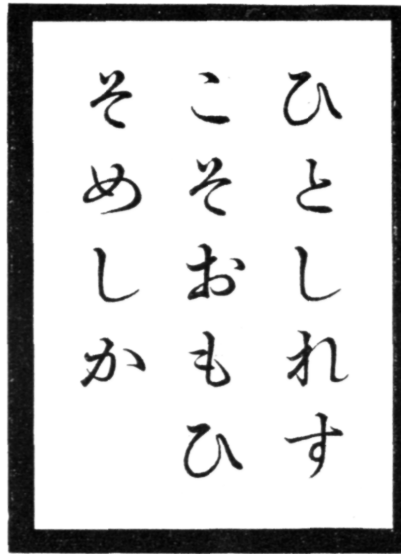 ひとしれす
こそおもひ
そめしか